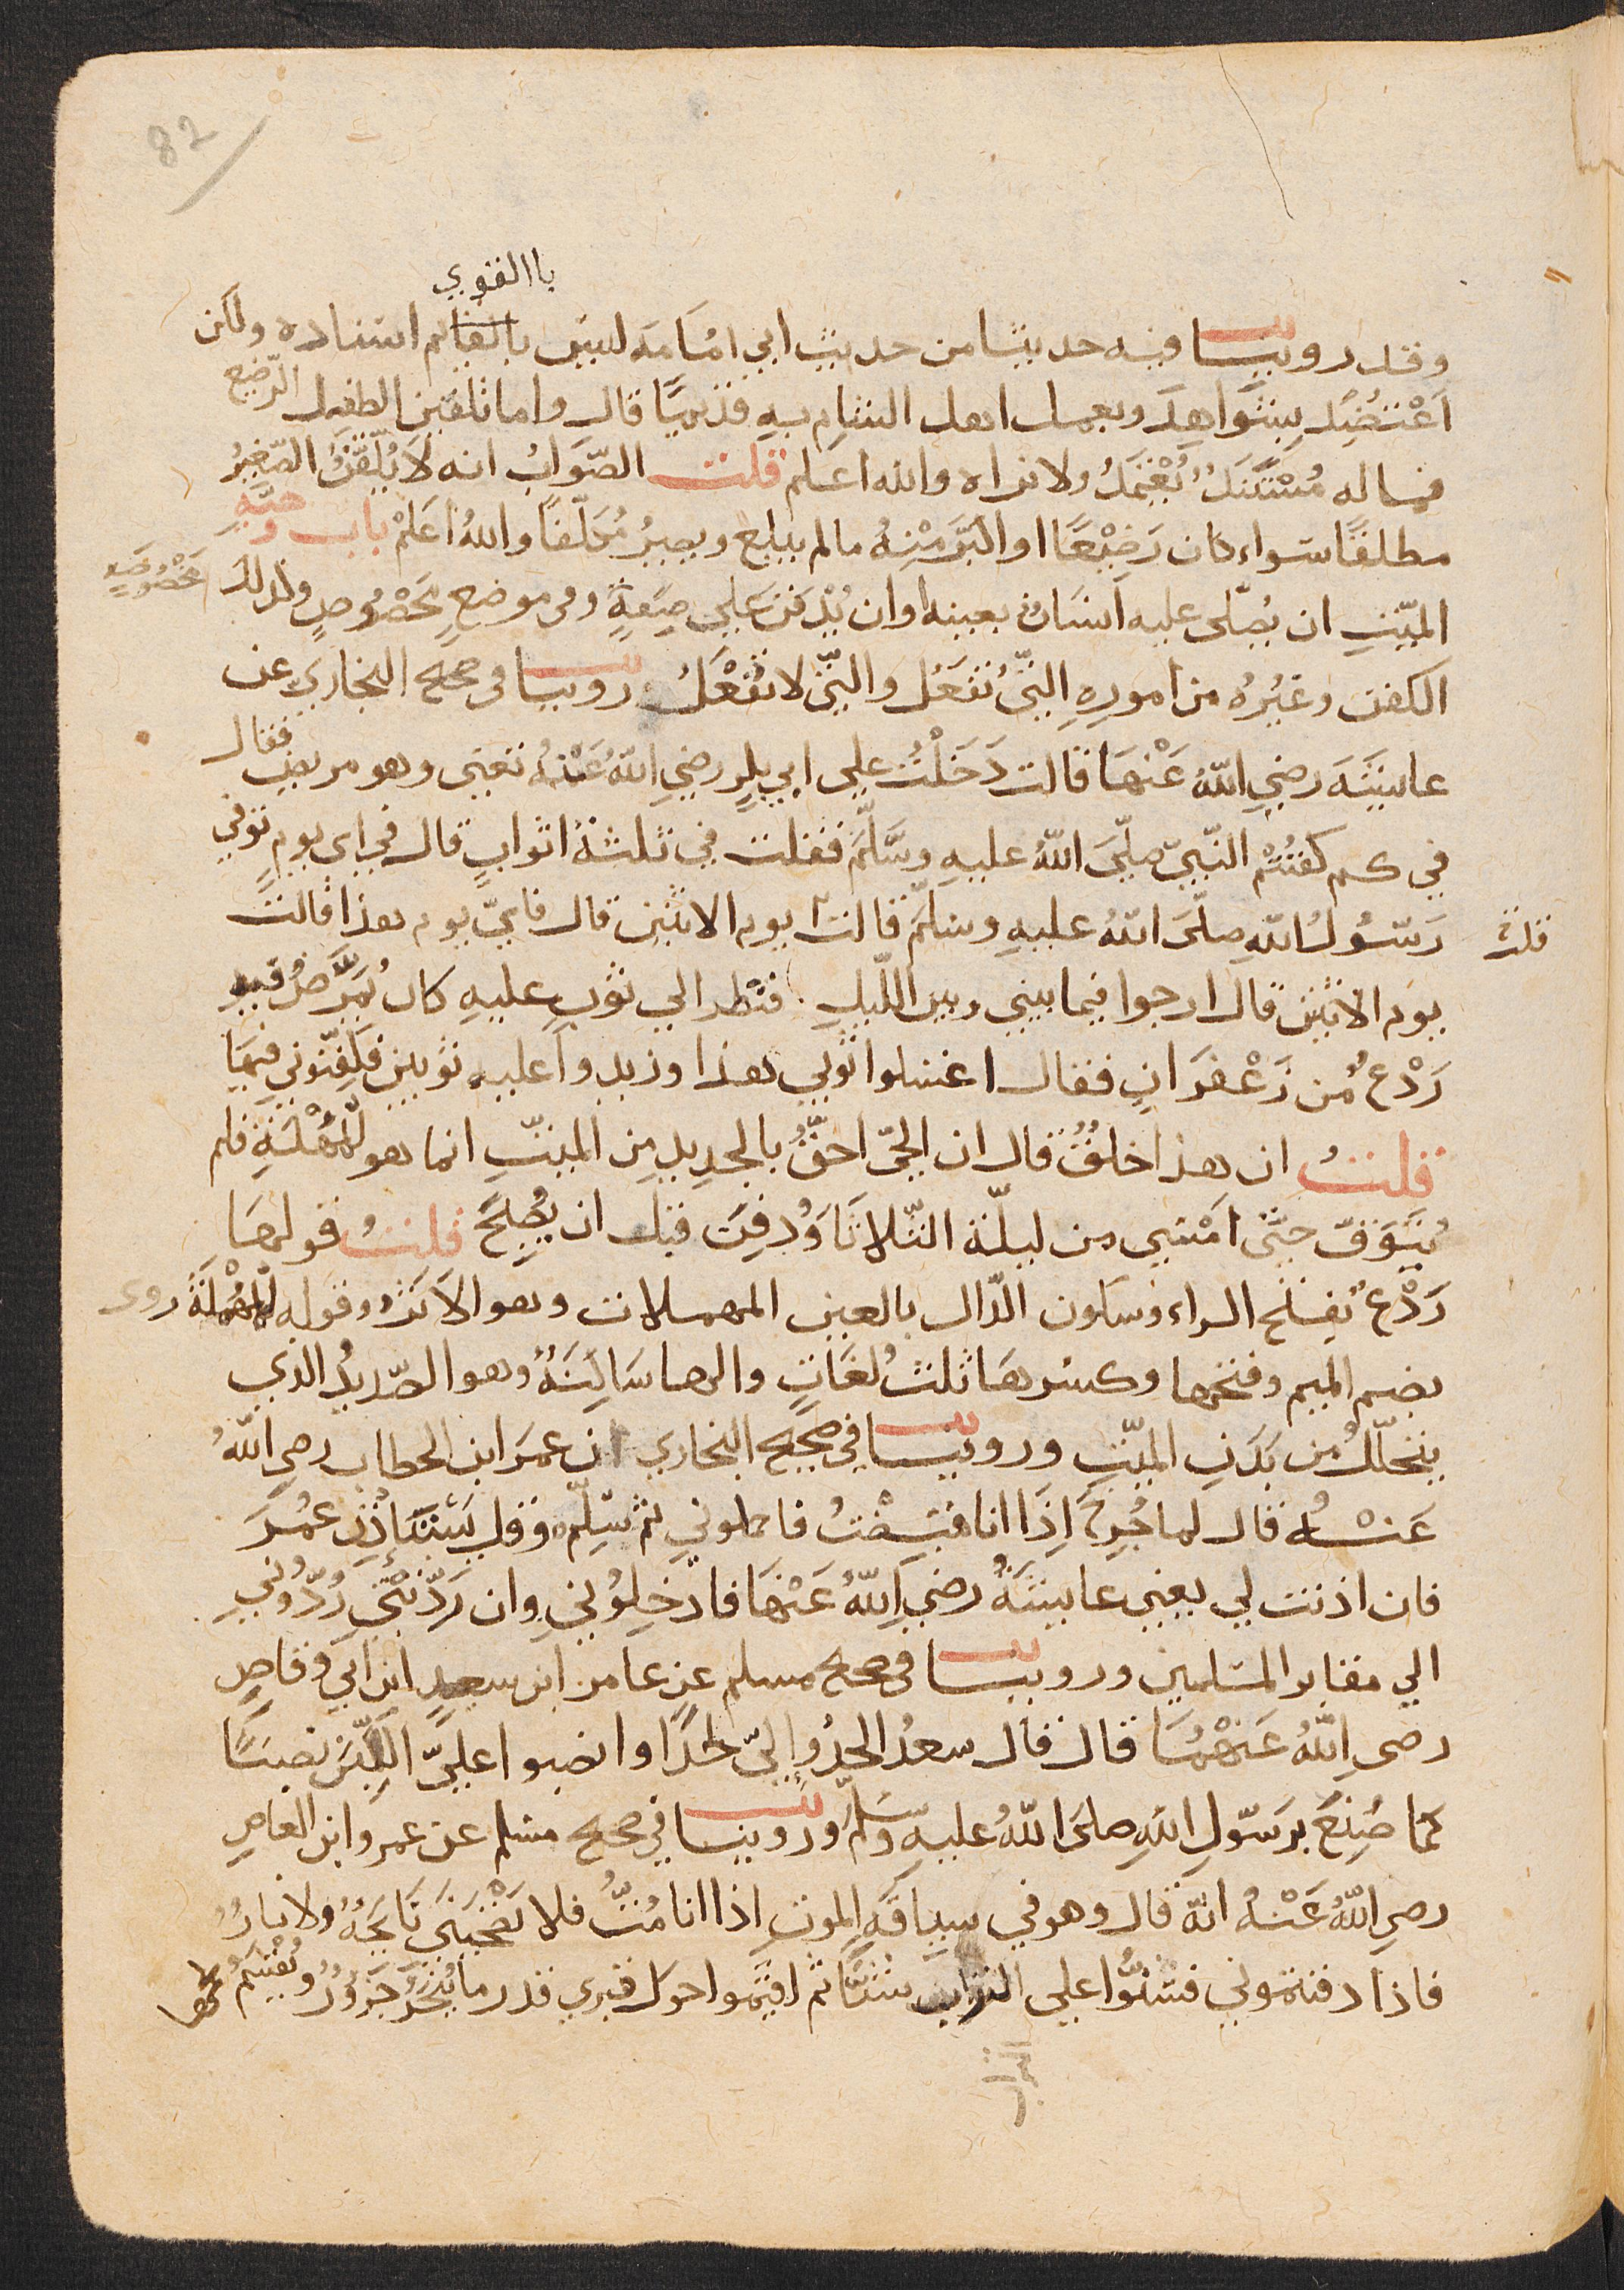 82
باالقوي
وقد روينا فيه حديثا من حديث ابي امامة ليس بالقايم اسناده ولكن
اعْتضِد بِشَوَاهِدَ وبعمل اهل الشام به قديمًا قال واما تلقين الطفل الرّضيع
فماله مُسْتَنَدٌ يُعْتمَدُ ولا نراه والله اعلم قلت الصّوَابُ انه لَا يُلَقّنُ الصّغِيرُ
مطلقًا سَواء كان رَضِيْعًا او اكبَرَ مِنْهُ مالم يبلغ ويصِيرُ مُكَلّفًا واللهُ اعَلمْ باب وصيّةِ
الميّتِ ان يُصَلّى عليه اِنسَانٌ بعينه وان يُدْفَنَ علي صِفَةٍ وفى موضعٍ مخصُوصٍ وكذلك
مَخْصُوصَةٍ
الكفن وغيْرُهُ من امورِهِ الّتِي تفعَل والّتِي لا تفْعَلُ روينا فى صحيح البخاري عن
عايشَةَ رضيِ اللهُ عَنْهَا قالت دَخَلْتُ علي ابي بكرٍ رضيِ اللهُ عَنْهُ تعْنى وهو مريض فقال
في كم كفنْتُمْ النّبيّ صلّيَ اللهُ عليهِ وسَلّمَ فقلت في ثلثة اثوابٍ قال في اى يومٍ توفي
رَسُولُ اللهِ صلّىَ اللهُ عليهِ وسلّمَ قالت يوم الاثنين قال فايّ يوم هذا قالت
قلت
يوم الاثنين قال ارجوا فيما بيني وبين اللّيل فنظر الي ثوبٍ عليهِ كان يُمَرَّضُ فيهِ
رَدْعٌ من زَعْفَرَانٍ فقال اغسلوا ثوبي هذا وزيدوا عليه ثوبين فكفّنوني فيهَا
قلت ان هذا خلقٌ قال ان الحيّ احقّ بالجديدِ مِن الميّتِ انما هو للمُهْلَةِ فلم
يُتَوَفّ حتّى امْسَي من ليلة الثّلاثَا وَدُفِنَ قبل ان يُصْبِحَ قلت قولهَا
رَدْعٌ بفتح الراء وسكون الدّال بالعين المهملات وهو الاثر وقوله للمُهْلَة روى
بضم الميم وفتحها وكسرهَا ثلث لغَاتٍ والهاسَاكِنَةٌ وهو الصّديدُ الذي
يتحلّلُ من بَدَنِ الميّتِ وروينا في صحيح البخاري ان عمَرَ ابن الخطاب رضي اللهُ
عَنْهُ قال لما جُرِحَ اِذَا انا قبِضْتُ فاحملوني ثم سَلِّمْ وقل يَسْتَاْذِن عُمَرَ
فان اذنت لي يعني عايشَةَ رضي اللهُ عَنْهَا فادْخِلُوْنِي وان رَدّتْنِي رُدُّوْنِي
الي مقابر المسلمين وروينا فى صحيح مسلم عن عامر ابن سعيد ابن ابي وقاصٍ
رضى اللهُ عَنْهُمَا قال قال سعدُ الحِدُوا لِيّ لحْدًا وانصبوا عليَّ اللّبِنَ نصبًا
كما صُنِعَ برَسُولِ اللهِ صلىَ اللهُ عليهِ وَسَلّمَ وروينا في صحيح مسلم عن عمرو ابن العاصِ
رضى اللهُ عَنْهُ انّهُ قال وهو في سِيَاقَةِ الموتِ اذا انا مُتُّ فلا تَصْحَبَنى نايحَةٌ ولا نارٌ
فاذا دفنتموني فشُنُّوا علي التراب شنًّا ثم اقيمُوا حول قبري قدر ما يُنْحَرُ جَزُوْرٌ ويُقْسَمُ لحمها
التراب